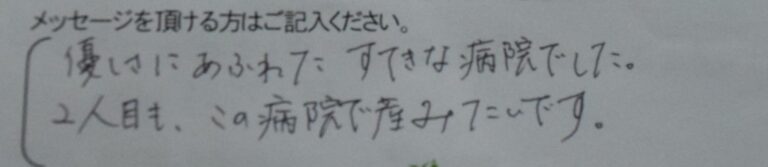 メッセージを頂ける方はご記入ください。
優しさにあふれた すてきな病院でした。
2人目も、この病院で産みたいです。